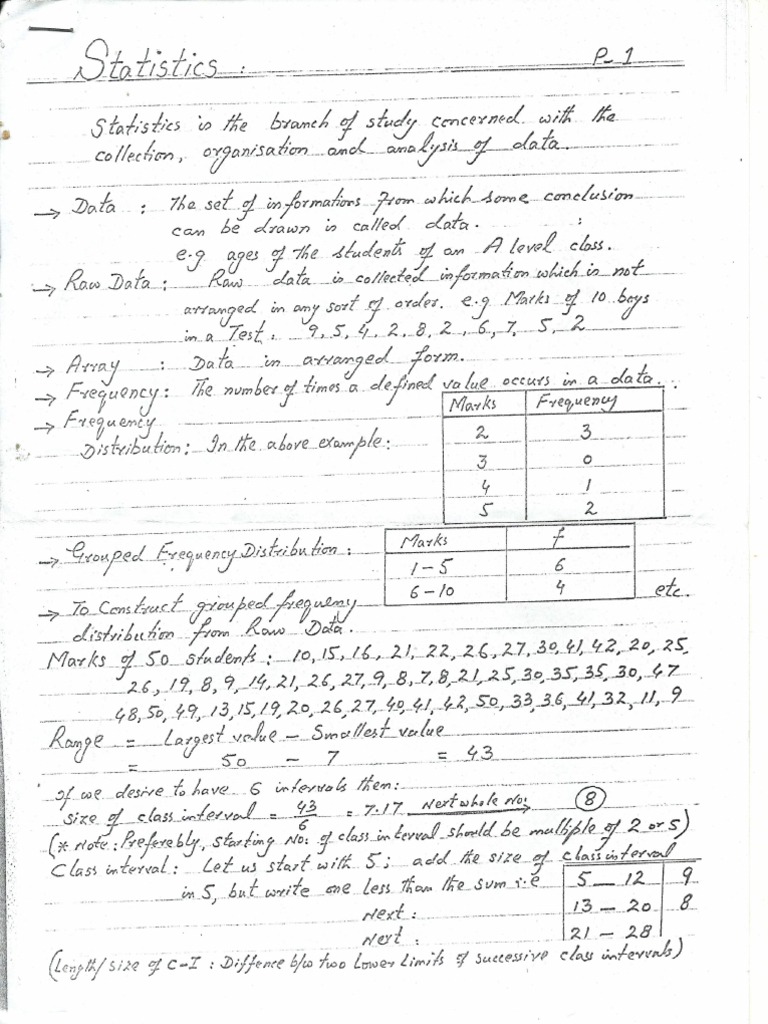 Statistics : P-1
Statistics is the branch of study concerned with the
collection, organisation and analysis of data.
→ Data : The set of informations from which some conclusion
can be drawn is called data.
e.g ages of the students of an A level class.
→ Raw Data : Raw data is collected information which is not
arranged in any sort of order. e.g Marks of 10 boys
in a Test : 9, 5, 4, 2, 8, 2, 6, 7, 5, 2
→ Array : Data in arranged form.
→ Frequency : The number of times a defined value occurs in a data.
→ Frequency
Distribution : In the above example :
Marks Frequency
2 3
3 0
4 1
5 2
→ Grouped Frequency Distribution :
Marks f
1-5 6
6-10 4
etc.
→ To Construct grouped frequency
distribution from Raw Data.
Marks of 50 students : 10, 15, 16, 21, 22, 26, 27, 30, 41, 42, 20, 25,
26, 19, 8, 9, 14, 21, 26, 27, 9, 8, 7, 8, 21, 25, 30, 35, 35, 30, 47
48, 50, 49, 13, 15, 19, 20, 26, 27, 40, 41, 42, 50, 33, 36, 41, 32, 11, 9
Range = Largest value - Smallest value
= 50 - 7 = 43
If we desire to have 6 intervals then:
size of class interval = 43/6 = 7.17 Next whole No: 8
(* Note : Preferebly, starting No: of class interval should be multiple of 2 or 5)
Class interval : Let us start with 5 ; add the size of class interval
in 5, but write one less than the sum i.e 5 — 12 9
Next : 13 — 20 8
Next : 21 — 28
(Length/size of C-I : Diffence b/w two Lower Limits of successive class intervals)